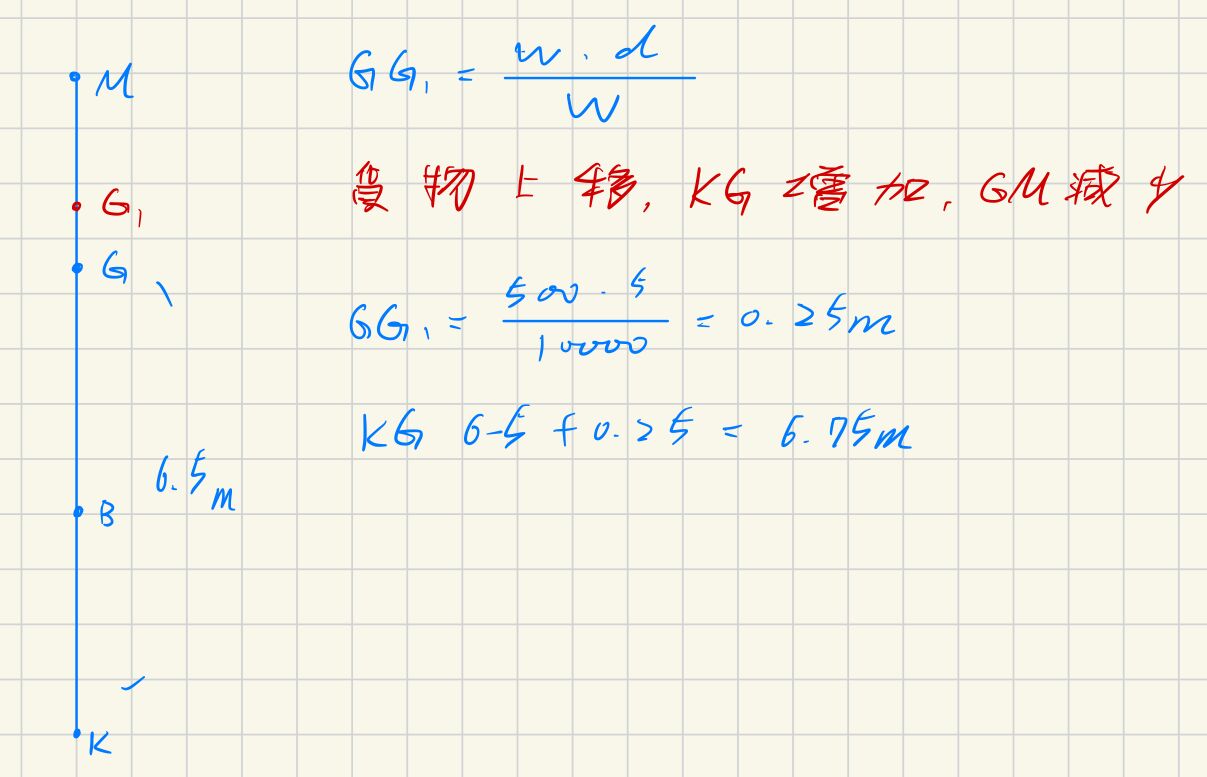 M
G₁
G
B
K
6.5m
GG₁ = w . d / W
貨物上移, KG 增加, GM 減少
GG₁ = 500 . 5 / 10000 = 0.25m
KG 6.5 + 0.25 = 6.75m